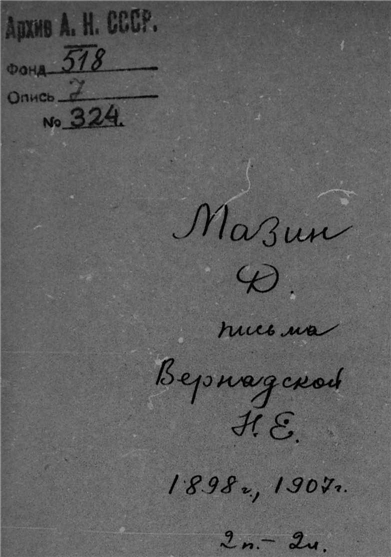 Архив А. Н. СССР.
Фонд 518
Опись 7
№ 324.
Мазин
Д.
письма
Вернадской
Н.Е.
1898г., 1907г.
2п.– 2л.